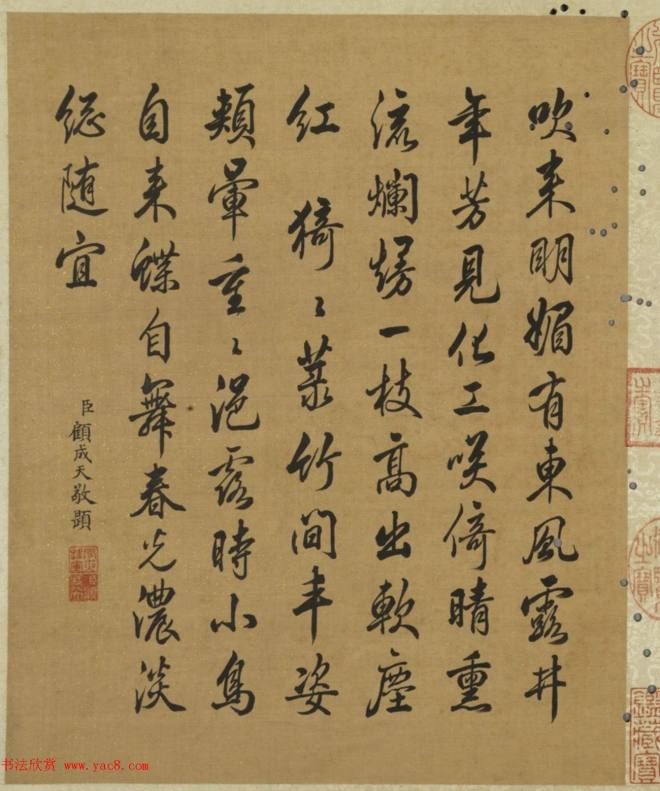 吹来明媚有東風露井
年芳見化工咲倚晴熏
流爛熳一枝高出軟塵
紅 猗〻菉竹間丰姿
頰暈重〻浥露時小鳥
自来蝶自舞春光濃淡
總随宜
臣顧成天敬題
书法欣赏 www.yac8.com